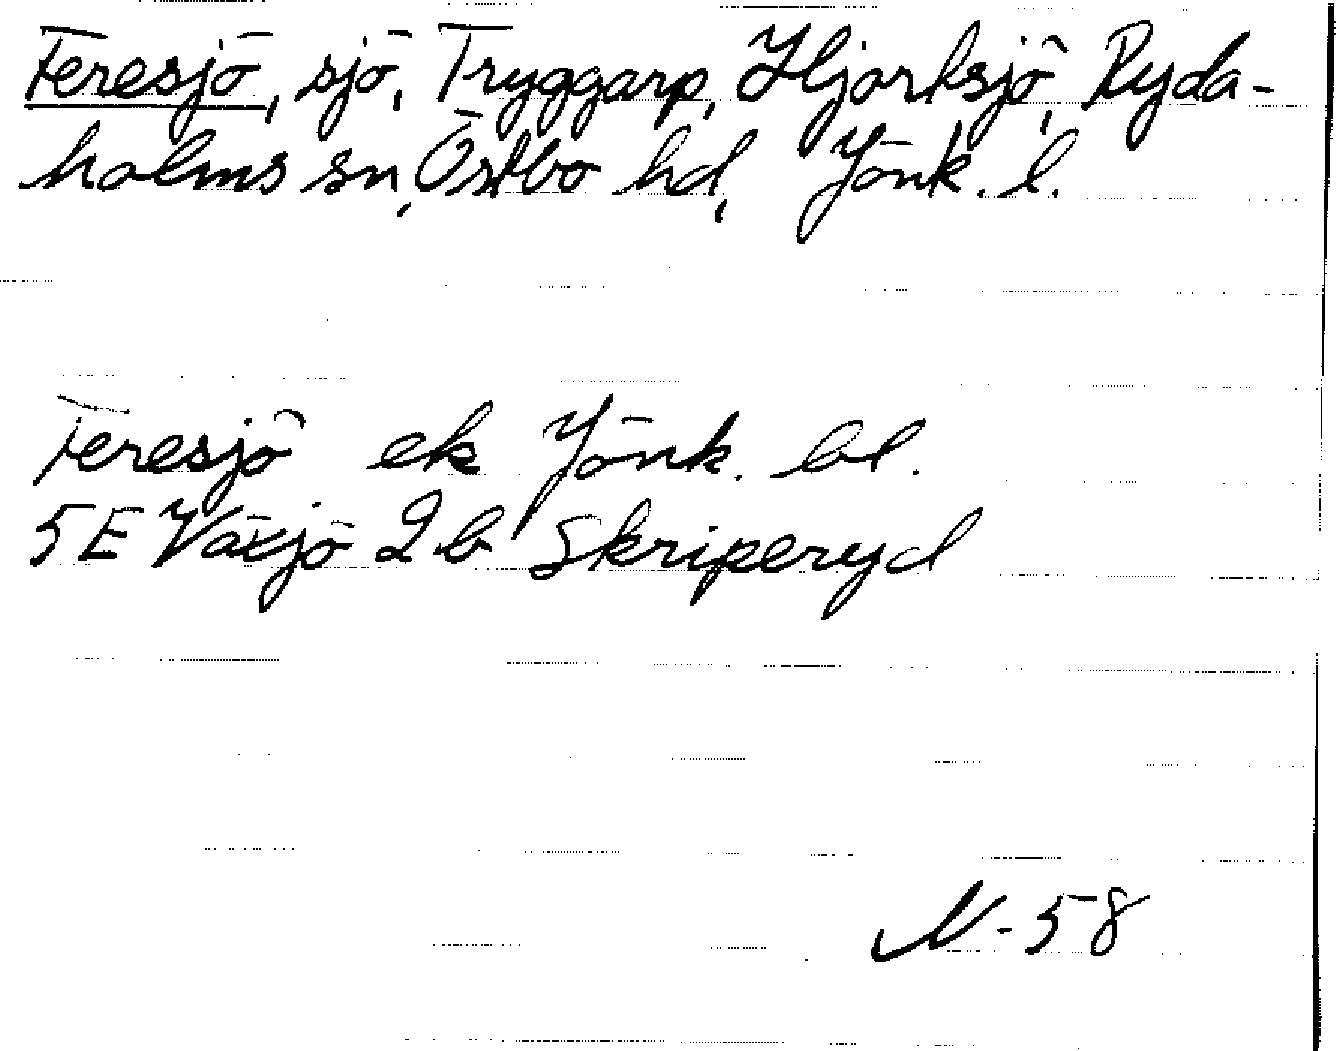 Feresjö, sjö, Tryggarp, Hjortsjö, Ryda-
holms sn, Östbo hd, Jönk. l.
Feresjö ek Jönk. bl.
5E Växjö 2b Skriperyd
N-58